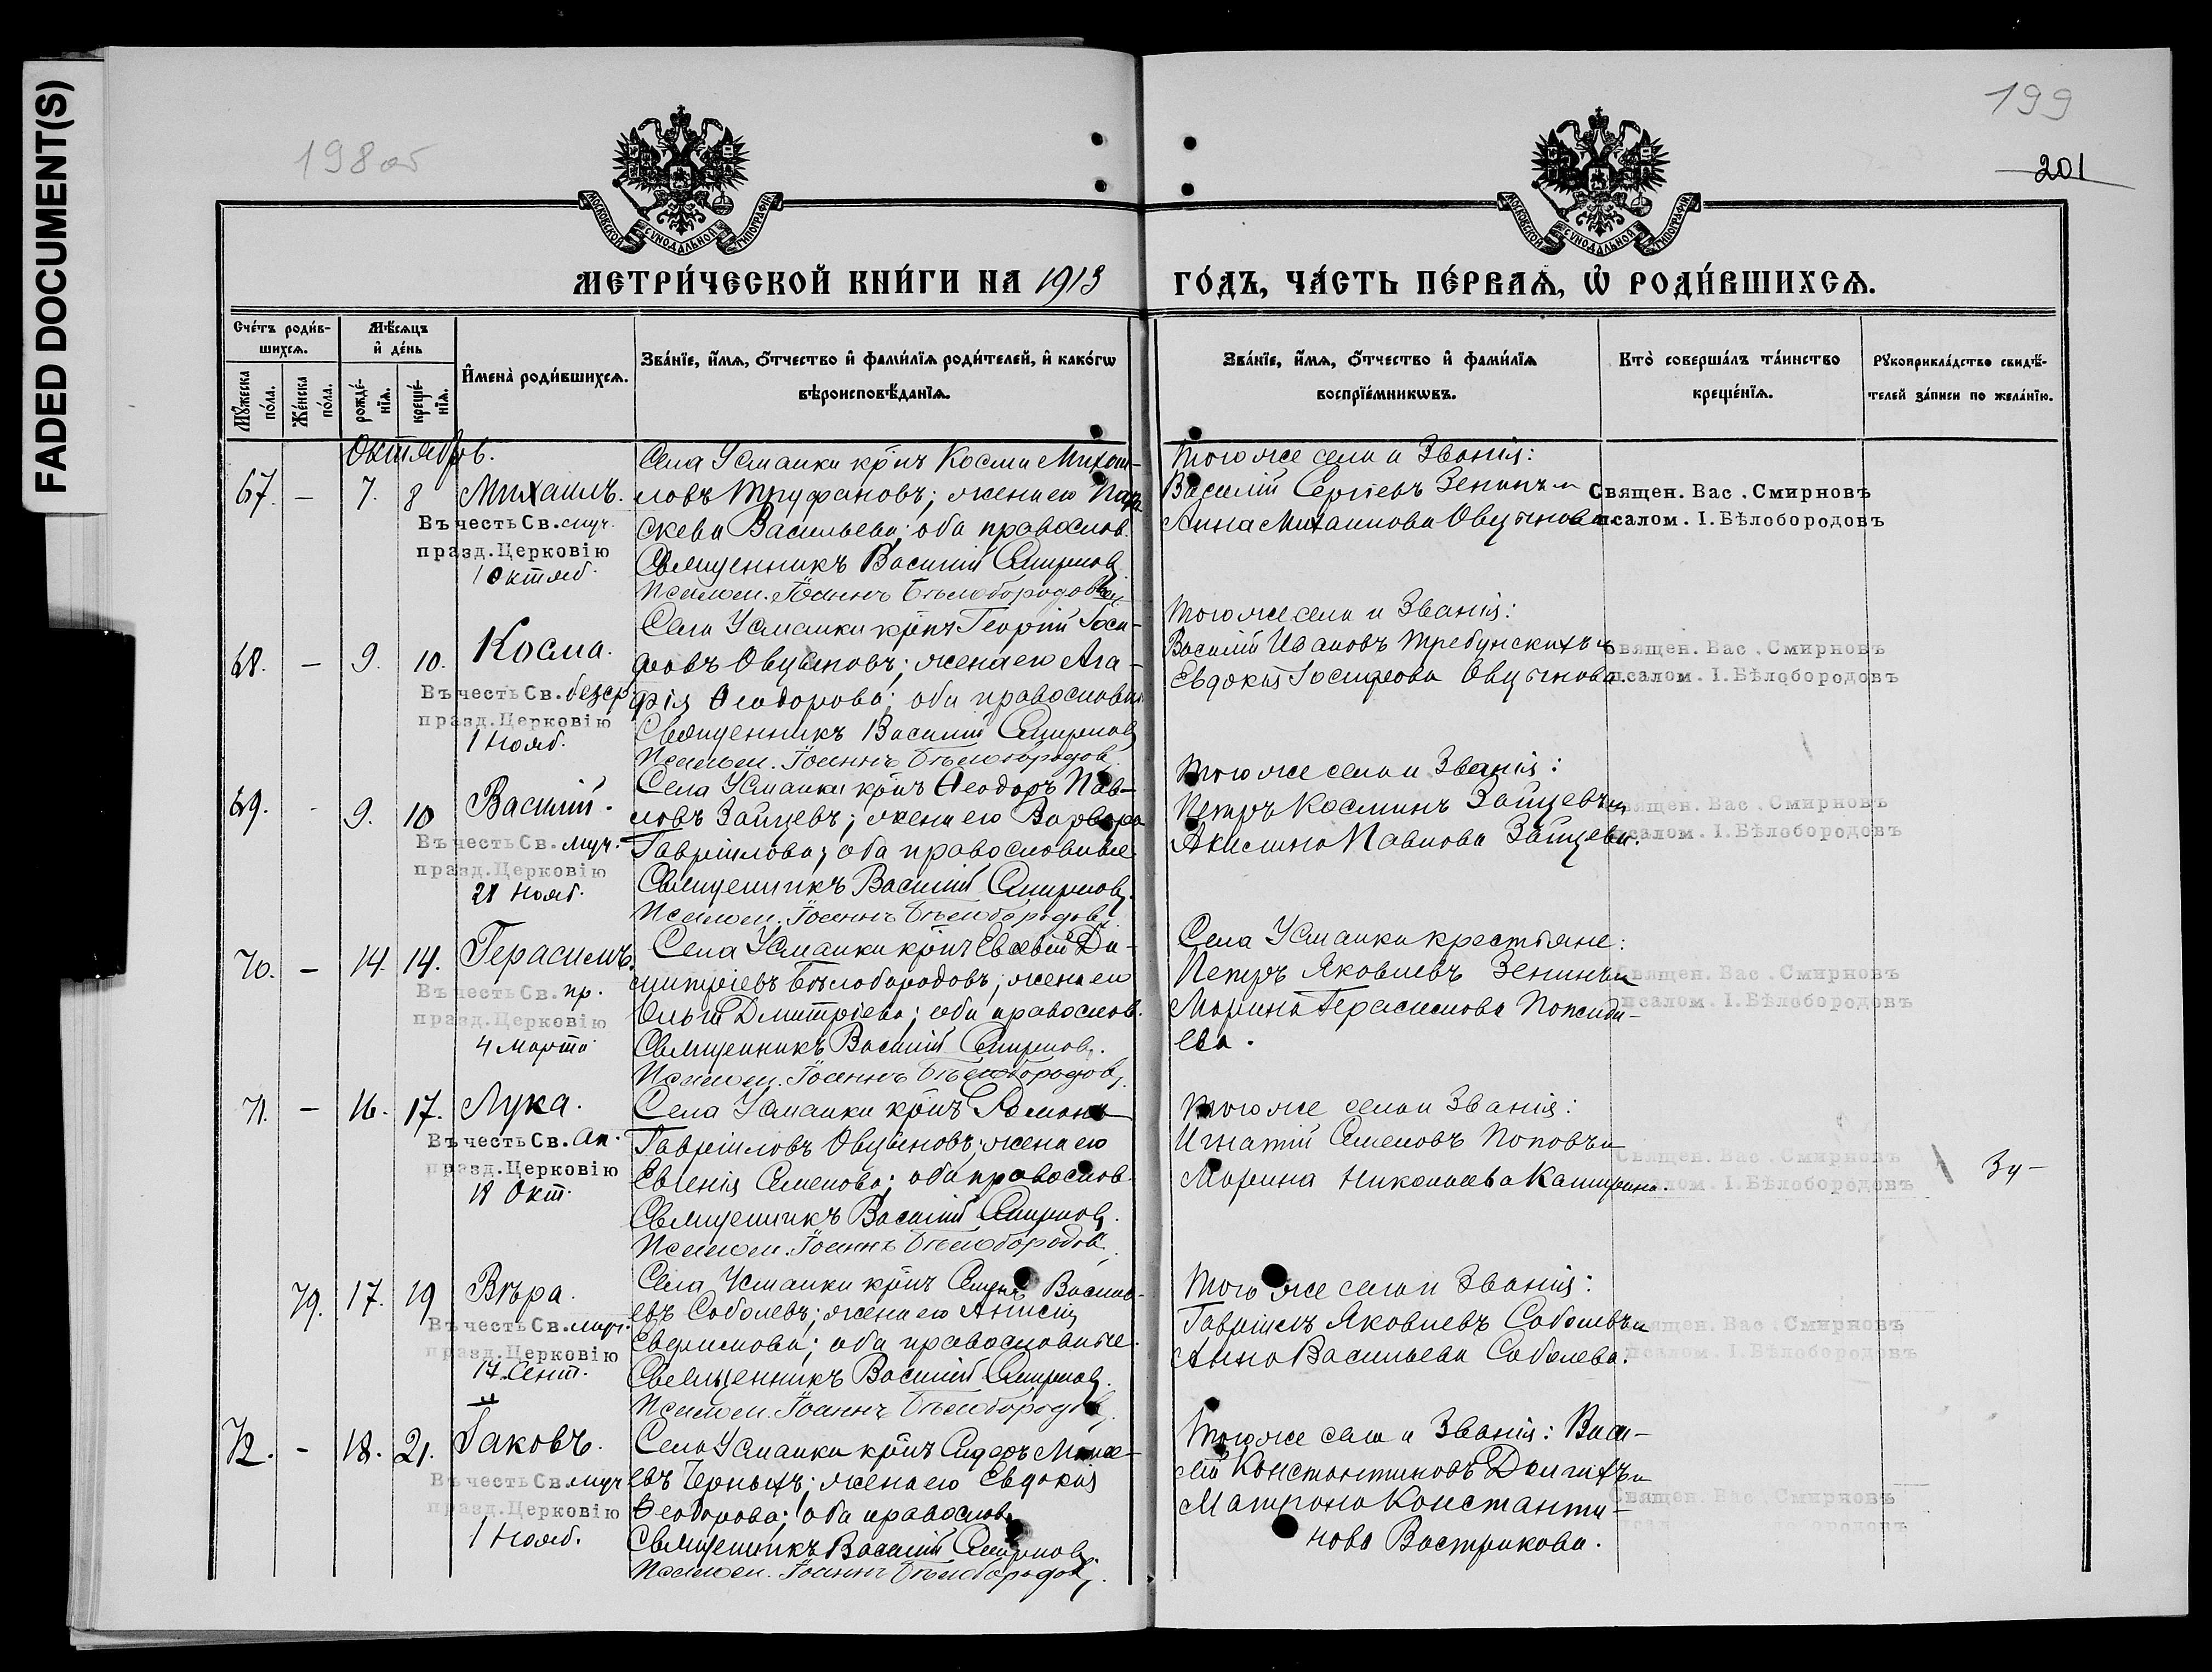 FADED DOCUMENT(S)
198 об
199
201
МОСКОВСКОЙ СѴНОДАЛЬНОЙ ТИПОГРАФІИ
МОСКОВСКОЙ СѴНОДАЛЬНОЙ ТИПОГРАФІИ
МЕТРИ́ЧЕСКОЙ КНИ́ГИ НА 1913 ГО́ДЪ, ЧА́СТЬ ПЕ́РВАѦ, Ѽ РОДИ́ВШИХСѦ.
Сче́тъ роди́в-
шихсѧ.
Мꙋ́жеска по́ла.
Же́нска по́ла.
Мѣ́сѧцъ
и҆ де́нь
рожде́-
нїѧ.
креще́-
нїѧ.
И҆мена̀ роди́вшихсѧ.
Зва́нїе, и҆́мѧ, ѻ҆́тчество и҆ фами́лїѧ роди́телей, и҆ како́гѡ
вѣроисповѣ́данїѧ.
Зва́нїе, и҆́мѧ, ѻ҆́тчество и҆ фами́лїѧ
воспрїе́мникѡвъ.
Кто̀ соверша́лъ та́инство
креще́нїѧ.
Рꙋкоприкла́дство свидѣ́-
телей за́писи по жела́нїю.
Октябрь.
67. – 7. 8 Михаилъ.
Въ честь Св. муч.
празд. Церковію
1 Октяб.
Села Усманки крнъ Косма Михаи-
ловъ Труфановъ; жена его Пара-
скева Васильева; оба правослов.
Священникъ Василій Смирновъ
Псалом. Іоаннъ Бѣлобородовъ
Того же села и Званія:
Василій Сергіевъ Зенинъ и
Анна Михаилова Овцынова.
Священ. Вас. Смирновъ
псалом. І. Бѣлобородовъ
68. – 9. 10. Косма.
Въ честь Св. безср.
празд. Церковію
1 Нояб.
Села Усманки крнъ Георгій Іоси-
фовъ Овцыновъ; жена его Ага-
фія Ѳеодорова; оба православн.
Священникъ Василій Смирновъ
Псалом. Іоаннъ Бѣлобородовъ
Того же села и Званія:
Василій Ивановъ Требунскихъ и
Евдокія Іосифова Овцынова.
Священ. Вас. Смирновъ
псалом. І. Бѣлобородовъ
69. - 9. 10 Василій.
Въ честь Св. муч.
празд. Церковію
28 Нояб.
Села Усманки крнъ Ѳеодоръ Пав-
ловъ Зайцевъ; жена его Варвара
Гавріилова; оба православные
Священникъ Василій Смирновъ.
Псалом. Іоаннъ Бѣлобородовъ
Того же села и Званія:
Петръ Косминъ Зайцевъ и
Акилина Павлова Зайцева.
Священ. Вас. Смирновъ
псалом. І. Бѣлобородовъ
70. – 14. 14. Герасимъ.
Въ честь Св. пр.
празд. Церковію
4 Марта
Села Усманки крнъ Евсевій Ди-
митріевъ Бѣлобородовъ; жена его
Ольга Дмитріева; оба правослов.
Священникъ Василій Смирновъ.
Псалом. Іоаннъ Бѣлобородовъ
Села Усманки крестьяне:
Петръ Яковлевъ Зенинъ и
Марина Герасимова
ева.
Священ. Вас. Смирновъ
псалом. І. Бѣлобородовъ
71. – 16. 17. Лука.
Въ честь Св. Ап.
празд. Церковію
18 Окт.
Села Усманки крнъ Романъ
Гавріиловъ Овцыновъ; жена его
Евгенія Семенова; оба правослов.
Священникъ Василій Смирновъ.
Псалом. Іоаннъ Бѣлобородовъ
Того же села и Званія:
Игнатій Семеновъ Поповъ и
Марина Николаева Каширина.
Священ. Вас. Смирновъ
псалом. І. Бѣлобородовъ
79. 17. 19 Вѣра.
Въ честь Св. муч.
празд. Церковію
17 Сент.
Села Усманки крнъ Семенъ Василь-
евъ Соболевъ; жена его Анисія
Евфимова; оба православные.
Священникъ Василій Смирновъ.
Псалом. Іоаннъ Бѣлобородовъ
Того же села и Званія:
Гавріилъ Яковлевъ Соболевъ и
Анна Васильева Соболева.
Священ. Вас. Смирновъ
псалом. І. Бѣлобородовъ
72. - 18. 21. Іаковъ.
Въ честь Св. муч
празд. Церковію
1 Нояб.
Села Усманки крнъ Сидоръ Моисе-
евъ Черныхъ; жена его Евдокія
Ѳеодорова; оба правослов.
Священникъ Василій Смирновъ.
Псалом. Іоаннъ Бѣлобородовъ
Того же села и Званія: Васи-
лій Константиновъ Долгихъ и
Матрона Константи-
нова Вострикова.
Священ. Вас. Смирновъ